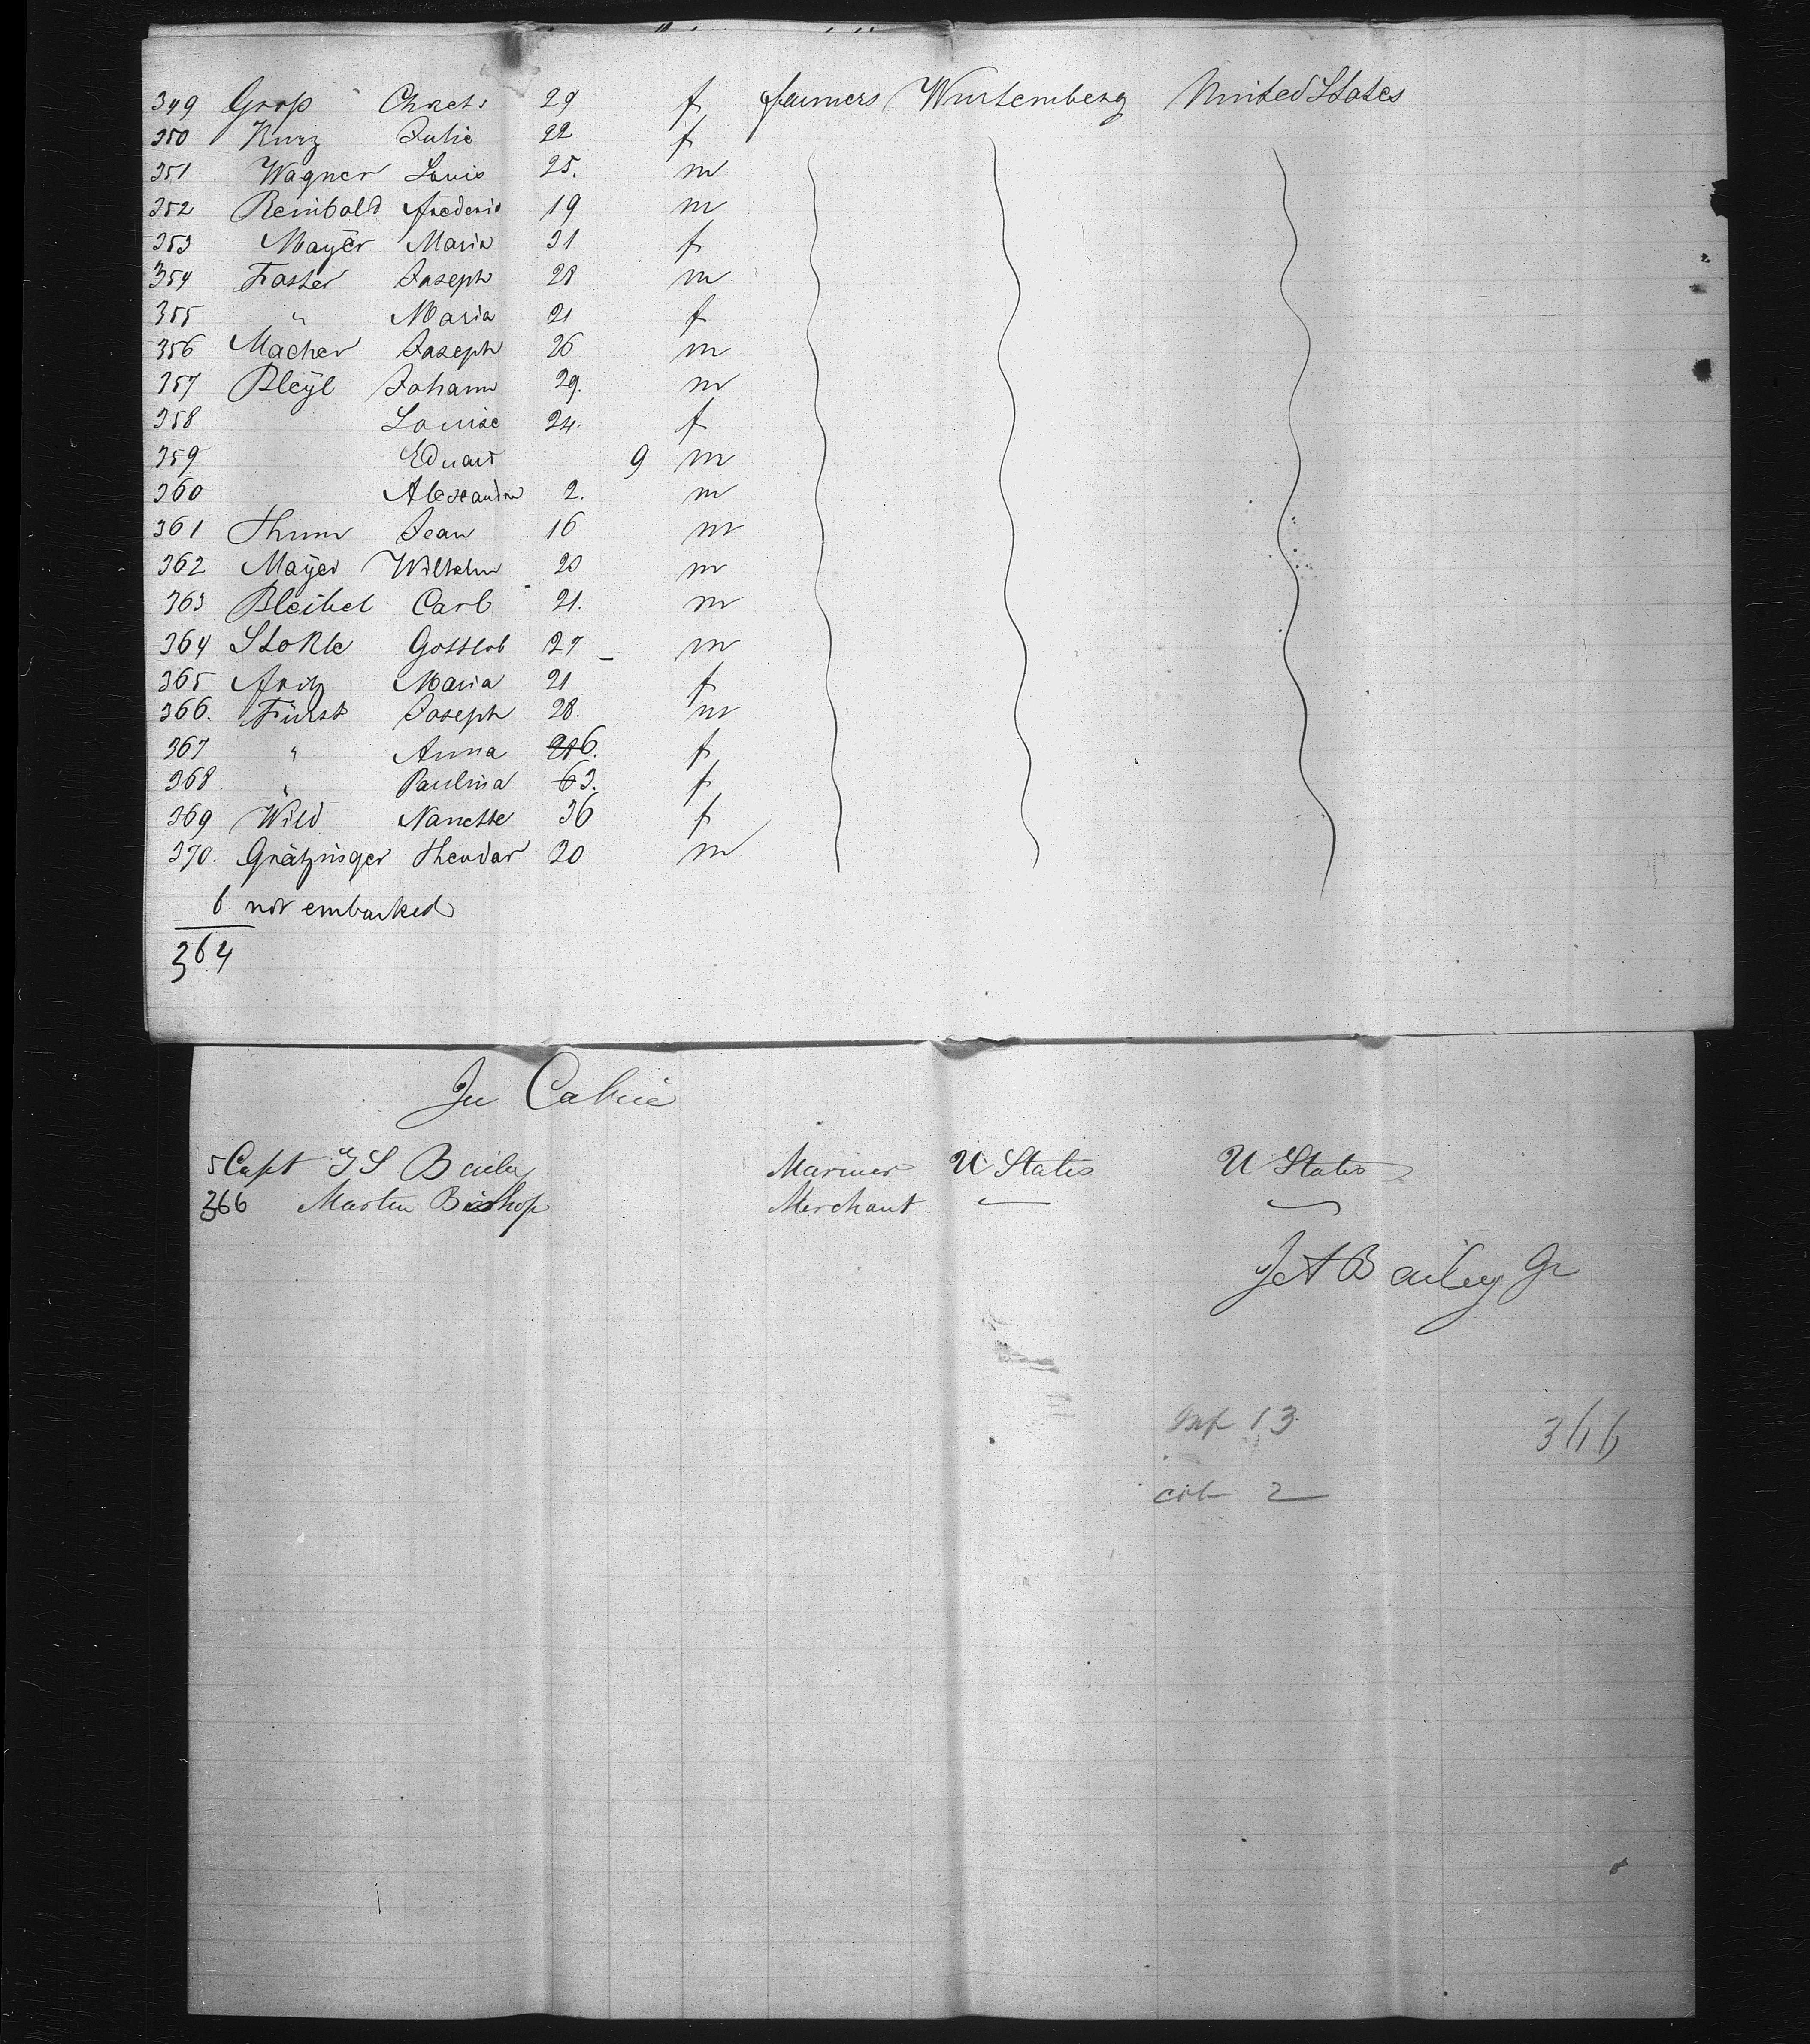 349 Groß Chnets 29 f farmers Wurtemberg United States
350 Kurz Julie 22 f
351 Wagner Louis 25. m
352 Reinbold Frederic 19 m
353 Mayer Maria 31 f
354 Faster Joseph 28 m
355 " Maria 21 f
356 Mächer Joseph 26 m
357 Bleÿl Johann 29. m
358 Louise 24. f
359 Eduard 9 m
360 Alexander 2. m
361 Thum Jean 16 m
362 Mayer Wilhelm 20 m
363 Bleibel Carl 21. m
364 Stokle Gottlob 27 m
365 Fritz Maria 21 f
366. Fürst Joseph 28. m
367 " Anna 26. f
368 " Paulina 63. f
369 Wild Nanette 36 f
370. Grätzinger Theodor 20 m
6 not embarked
364
In Cabin
5 Capt J S Bailey Mariner U States U States
366 Martin Bishop Merchant
J A Bailey Jr
Inf 13
366
cab 2